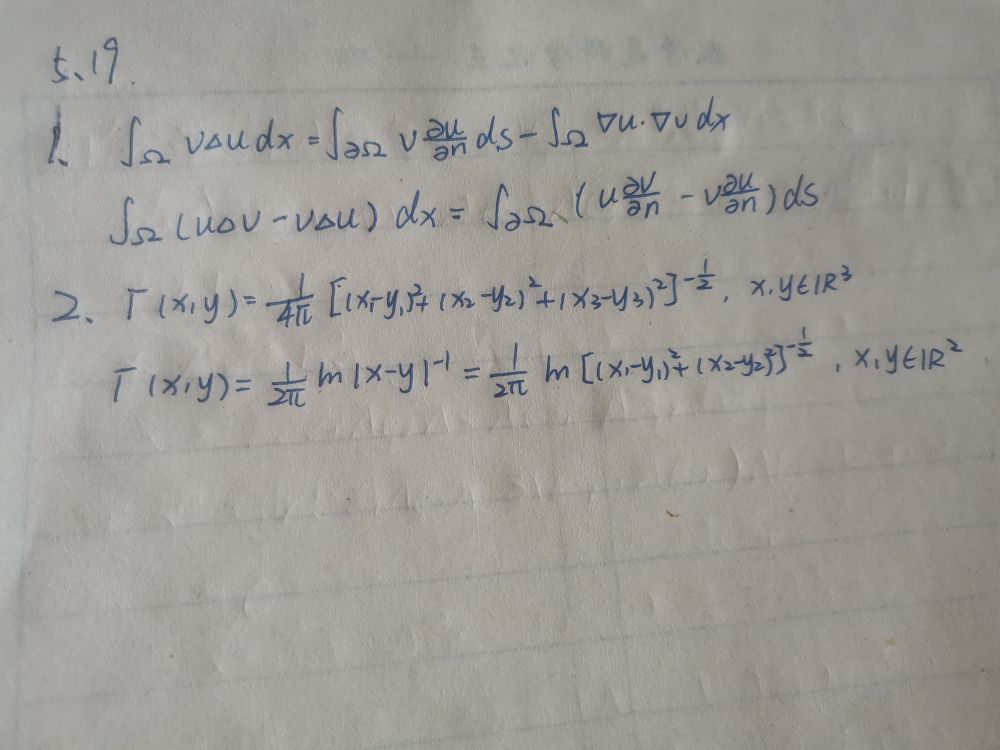 5.19.
1. ∫_Ω v△u dx = ∫_∂Ω v ∂u/∂n ds - ∫_Ω ∇u·∇v dx
∫_Ω (u△v - v△u) dx = ∫_∂Ω (u ∂v/∂n - v ∂u/∂n) ds
2、 Γ(x,y) = 1/4π [(x₁-y₁)²+(x₂-y₂)²+(x₃-y₃)²]^{-1/2}, x,y∈ℝ³
Γ(x,y) = 1/2π ln|x-y|^{-1} = 1/2π ln[(x₁-y₁)²+(x₂-y₂)²]^{-1/2}, x,y∈ℝ²